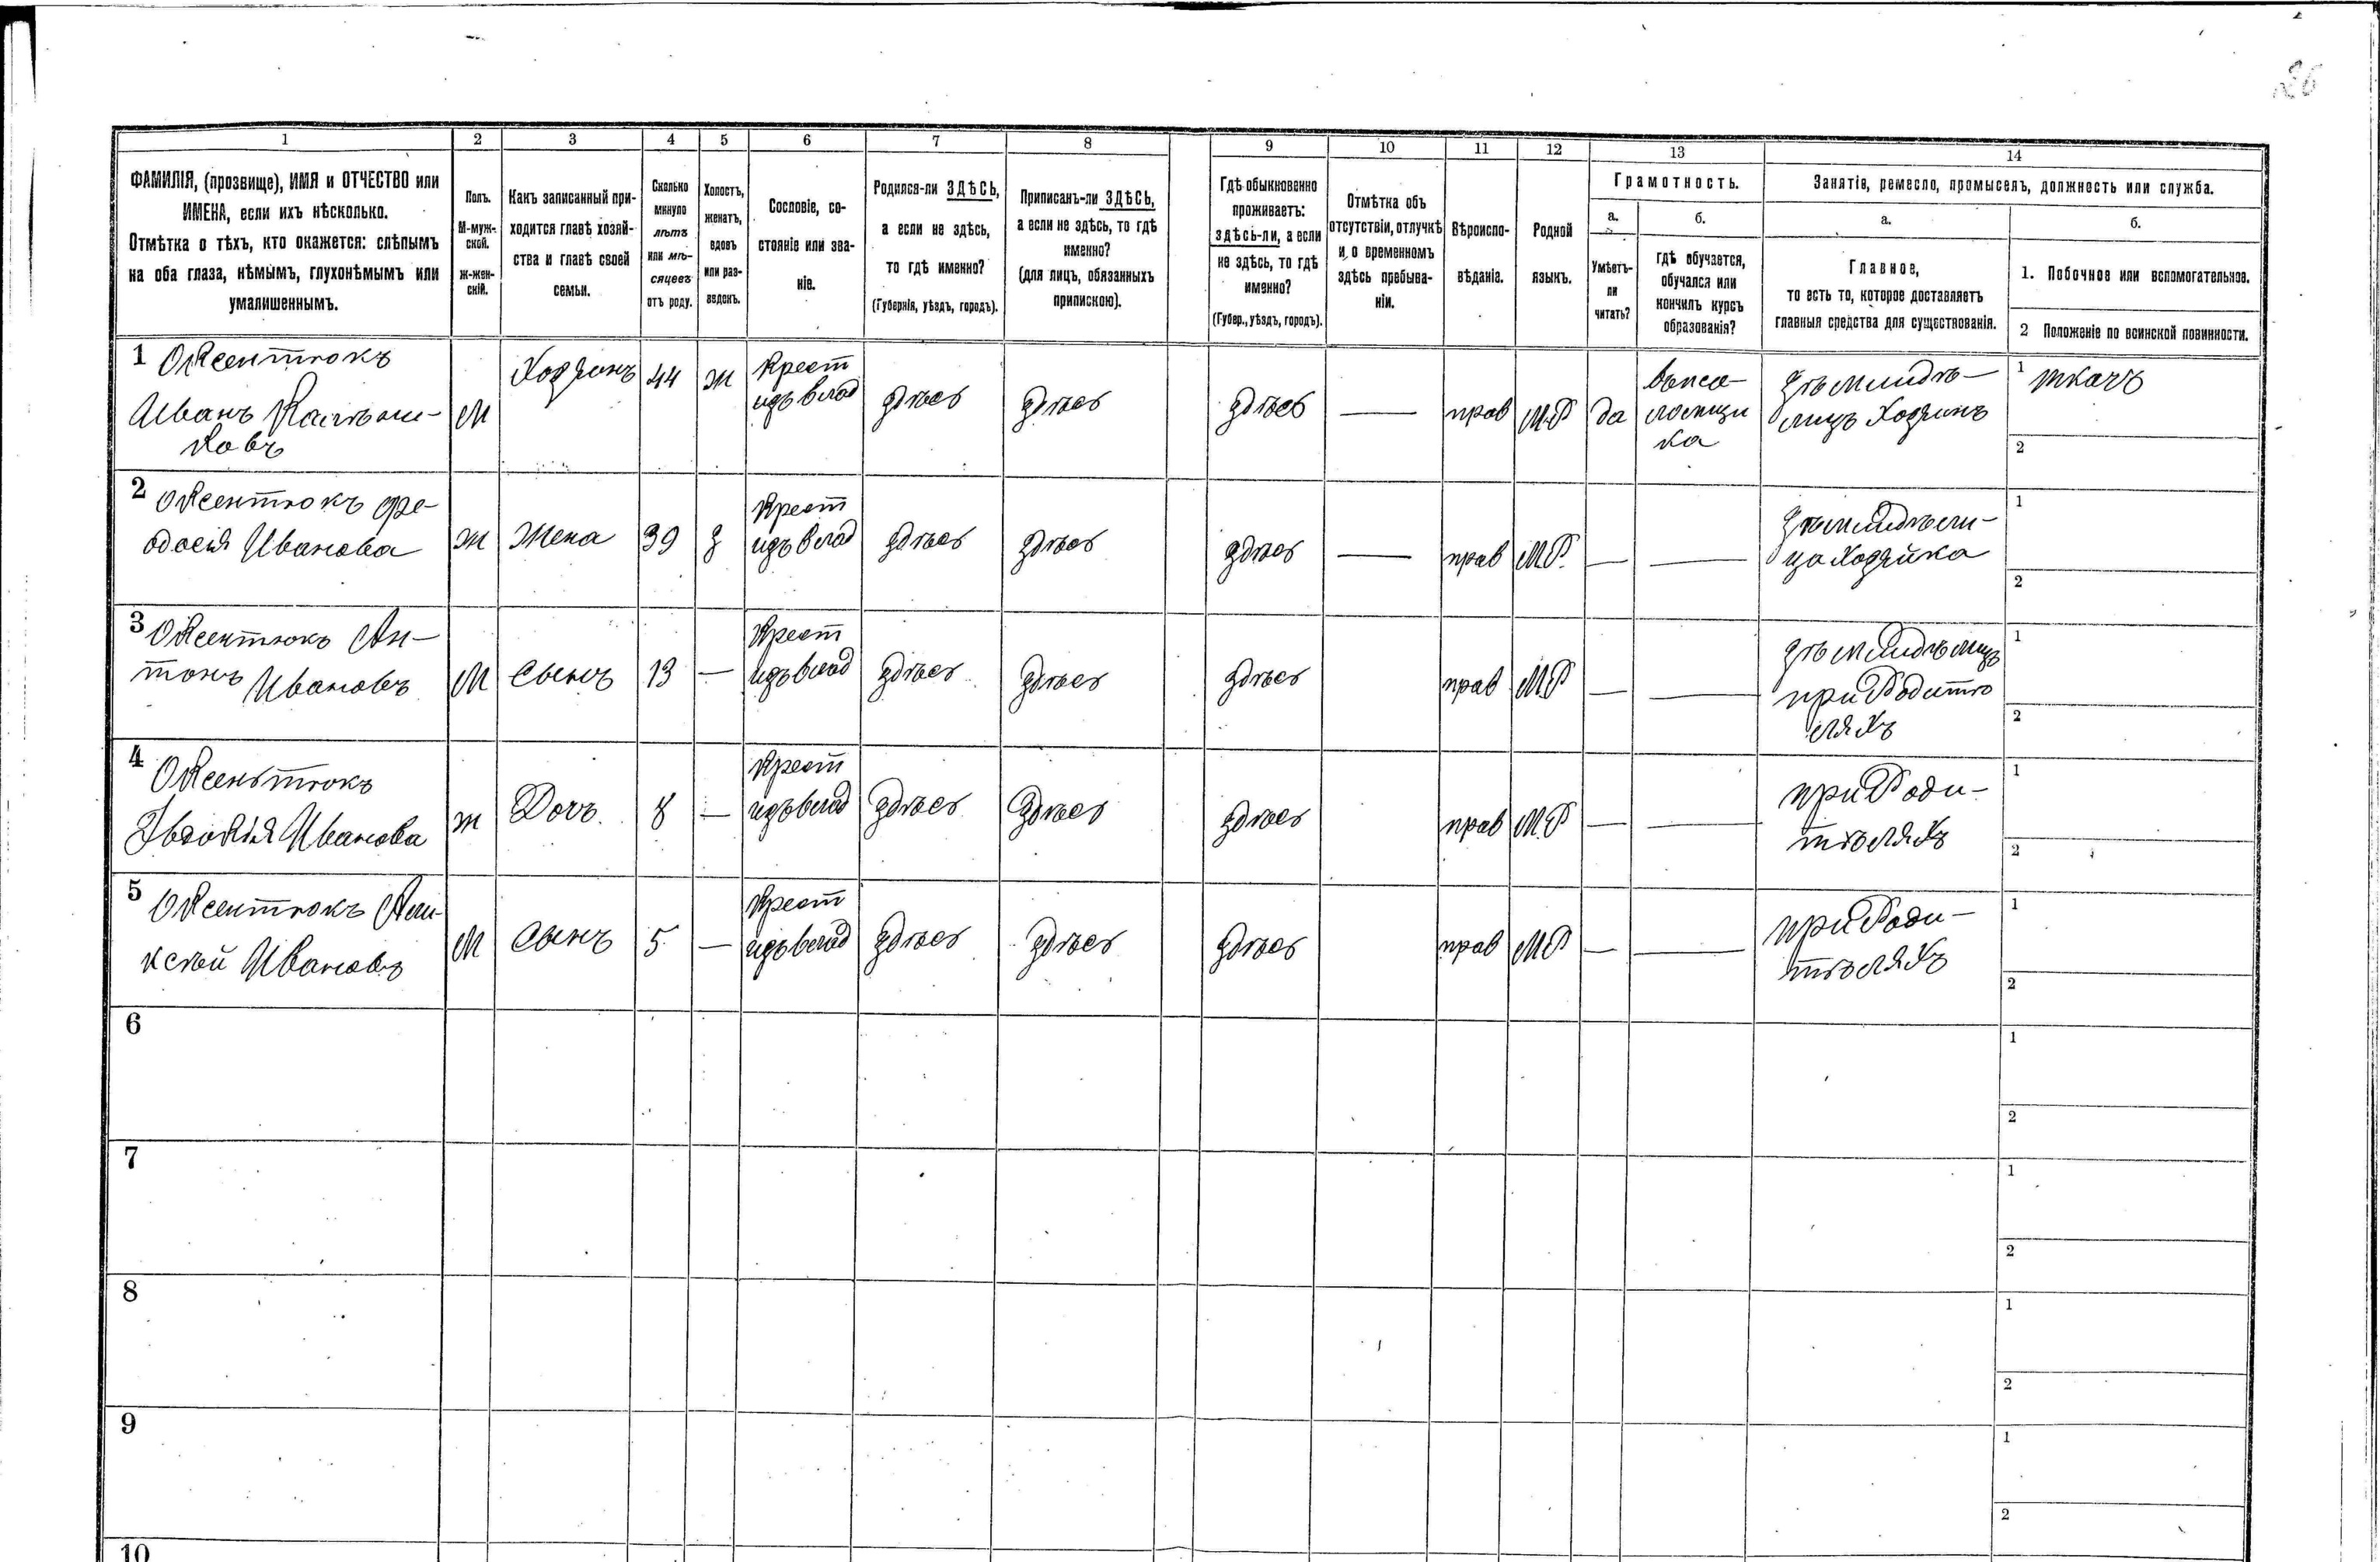 26
1 2 3 4 5 6 7 8 9 10 11 12 13 14
ФАМИЛІЯ, (прозвище), ИМЯ и ОТЧЕСТВО или
ИМЕНА, если ихъ нѣсколько.
Отмѣтка о тѣхъ, кто окажется: слѣпымъ
на оба глаза, нѣмымъ, глухонѣмымъ или
умалишеннымъ.
Полъ.
М-муж-
ской.
Ж-жен-
скій.
Какъ записанный при-
ходится главѣ хозяй-
ства и главѣ своей
семьи.
Сколько
минуло
лѣтъ
или мѣ-
сяцевъ
отъ роду.
Холостъ,
женатъ,
вдовъ
или раз-
веденъ.
Сословіе, со-
стояніе или зва-
ніе.
Родился-ли ЗДѢСЬ,
а если не здѣсь,
то гдѣ именно?
(Губернія, уѣздъ, городъ).
Приписанъ-ли ЗДѢСЬ,
а если не здѣсь, то гдѣ
именно?
(для лицъ, обязанныхъ
припискою).
Гдѣ обыкновенно
проживаетъ:
здѣсь-ли, а если
не здѣсь, то гдѣ
именно?
(Губер., уѣздъ, городъ).
Отмѣтка объ
отсутствіи, отлучкѣ
и о временномъ
здѣсь пребыва-
ніи.
Вѣроиспо-
вѣданіе.
Родной
языкъ.
Грамотность.
а.
Умѣетъ-
ли
читать?
б.
гдѣ обучается,
обучался или
кончилъ курсъ
образованія?
Занятіе, ремесло, промыселъ, должность или служба.
а.
Главное,
то есть то, которое доставляетъ
главныя средства для существованія.
б.
1. Побочное или вспомогательное.
2 Положеніе по воинской повинности.
1 Оксентюкъ
Иванъ
ковъ
М
Хозяинъ
44
ж
Крест
изъ влад
здѣсь
здѣсь
здѣсь
—
прав
М.Р
да
зѣмлидѣ-
лицъ Хозяинъ
1 ткачъ
2
2 Оксентюкъ Фе-
одосія Иванова
ж
Жена
39
з
Крест
изъ влад
здѣсь
здѣсь
здѣсь
—
прав
М.Р.
—
—
зѣмлидѣли-
ца Хозяйка
1
2
3 Оксентюкъ Ан-
тонъ Ивановъ
М
Сынъ
13
—
Крест
изъ влад
здѣсь
здѣсь
здѣсь
прав
М.Р
—
—
зѣмлидѣлицъ
при Родитѣ
ляхъ
1
2
4 Оксеньтюкъ
Евдокія Иванова
ж
Дочь.
8
—
Крест
изъ влад
здѣсь
здѣсь
здѣсь
прав
М.Р
—
—
при Роди-
тѣляхъ
1
2
5 Оксентюкъ Али-
ксѣй Ивановъ
М
Сынъ
5
—
Крест
изъ влад
здѣсь
здѣсь
здѣсь
прав
М.Р
—
—
при Роди-
тѣляхъ
1
2
6
1
2
7
1
2
8
1
2
9
1
2
10